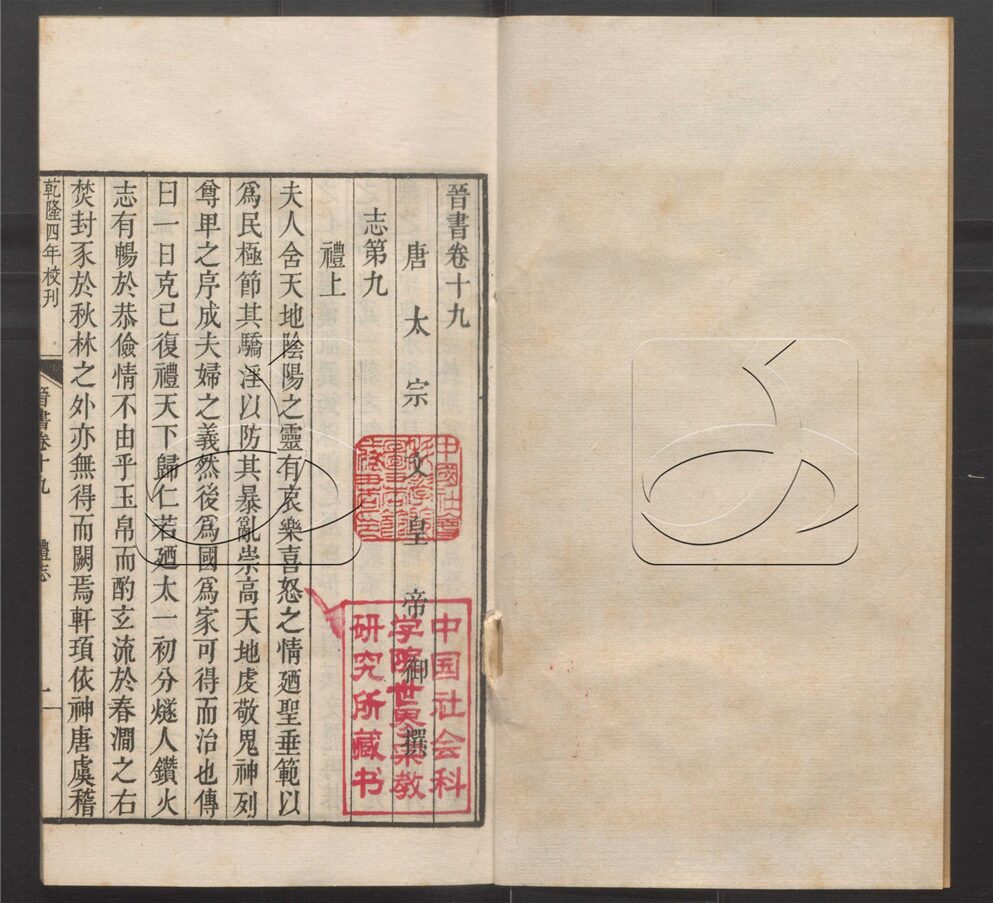 晉書卷十九
唐太宗文皇帝御撰
志第九
禮上
夫人含天地陰陽之靈有哀樂喜怒之情廼聖垂範以
爲民極節其驕淫以防其暴亂崇高天地虔敬鬼神列
尊卑之序成夫婦之義然後爲國爲家可得而治也傳
曰一日克己復禮天下歸仁若廼太一初分燧人鑽火
志有暢於恭儉情不由乎玉帛而酌玄流於春澗之右
焚封豕於秋林之外亦無得而闕焉軒頊依神唐虞稽
乾隆四年校刊
晉書卷十九
禮志
一
中国社会科
学院世界宗教
研究所藏书
中國社會